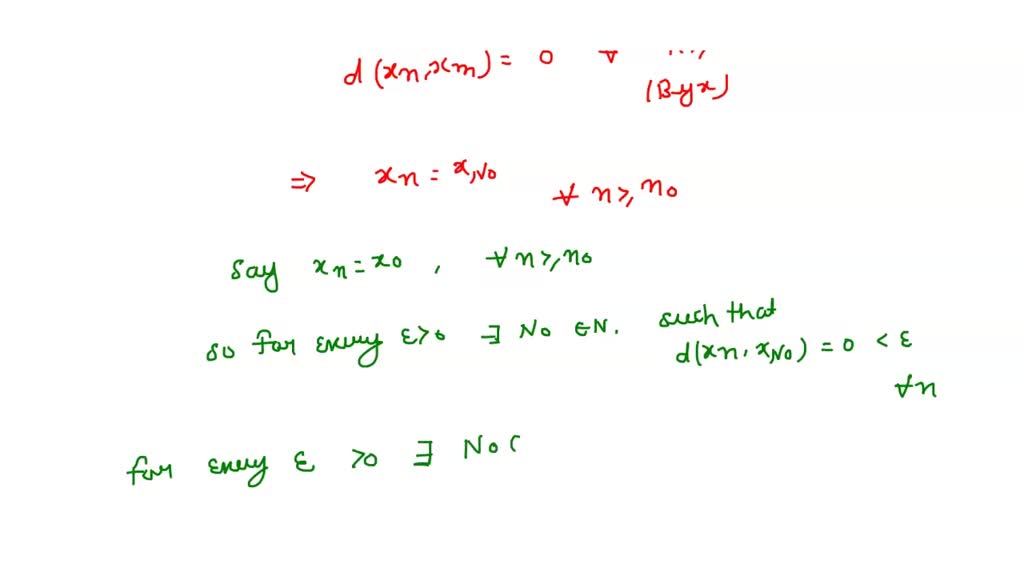 d(xn,xm) = 0 ∀
(By x)
⇒ xn = x,N0 ∀ n ≥, n0
Say xn = x0 , ∀ n ≥, n0
so for every ε>0 ∃ No ∈ N. such that
d(xn, x,N0) = 0 < ε
∀n
for every ε >0 ∃ No (